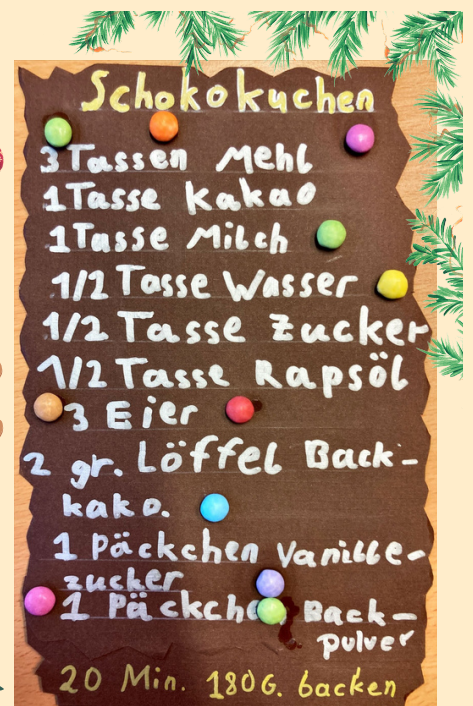 Schokokuchen
3 Tassen Mehl
1 Tasse Kakao
1 Tasse Milch
1/2 Tasse Wasser
1/2 Tasse Zucker
1/2 Tasse Rapsöl
3 Eier
2 gr. Löffel Back-
kako.
1 Päckchen Vanille-
zucker
1 Päckchen Back-
pulver
20 Min. 180G. backen